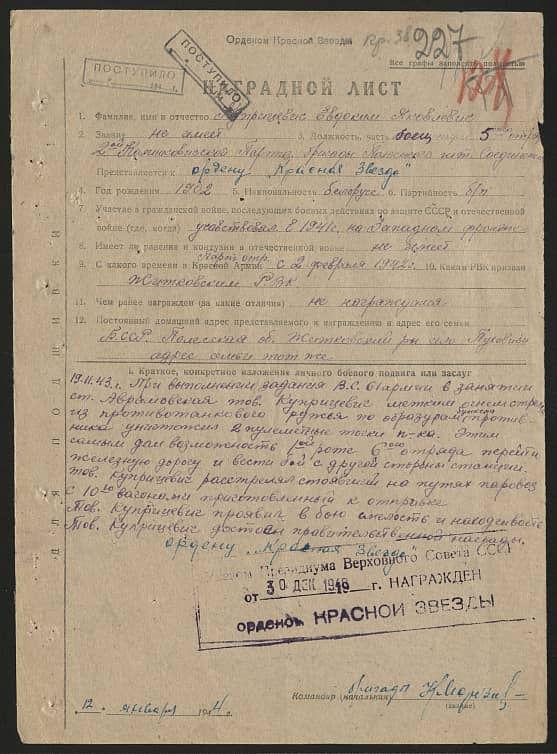 Орденом Красной Звезды
Кр. 38
227
Все графы заполнять полностью
ПОСТУПИЛО
ПОСТУПИЛО
НАГРАДНОЙ ЛИСТ
1. Фамилия, имя и отчество Куприцевис Евдоким Яковлевис
2. Звание не имеет 3. Должность, часть боец 5
2ой Партиз. бригады
Представляется к ордену „Красная Звезда"
4. Год рождения 1902 5. Национальность белорус 6. Партийность б/п
7. Участие в гражданской войне, последующих боевых действиях по защите СССР и отечественной
войне (где, когда) с 1941г. на Западном фронте
8. Имеет ли ранения и контузии в отечественной войне не имеет
9. С какого времени в Красной Армии Парт. отр. с 2 февраля 1942г. 10. Каким РВК призван
Житковским РВК
11. Чем ранее награжден (за какие отличия) не награждался
12. Постоянный домашний адрес представляемого к награждению и адрес его семьи
БССР. Полесская об. Житковский р-н село
адрес семьи тот же
I. Краткое, конкретное изложение личного боевого подвига или заслуг
19.11.43г. При выполнении задания в занятии
ст. тов. Куприцевис метким огнем
из противотанкового ружья по против-
ника уничтожил 2 пулеметные точки п-ка. Этим
самым дал возможность 1ой роте 6ого отряда перейти
железную дорогу и вести бой с другой стороны станции.
Тов. Куприцевис расстрелял стоявший на путях паровоз
с 10ю вагонами приготовленный к отправке
Тов. Куприцевис проявил в бою смелость и находчивость
Тов. Куприцевис достоин правительственной награды.
ордену „Красная Звезда"
Президиума Верховного Совета СССР
от 30 ДЕК 1948 г. НАГРАЖДЕН
орденом КРАСНОЙ ЗВЕЗДЫ
Командир (начальник) бригады
(звание)
12 января 1944 г.
ДЛЯ ПОДШИВКИ